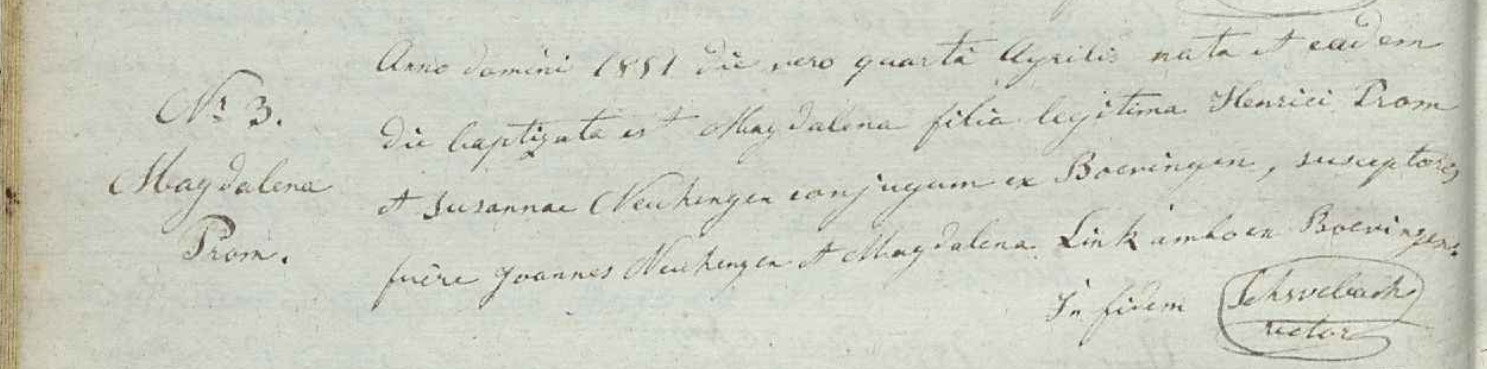 Nr 3.
Magdalena
Prom.
Anno domini 1851 die vero quarta Aprilis nata et eadem
die baptizata est Magdalena filia legitima Henrici Prom
et Susannae Neuhengen conjugum ex Boevingen, susceptores
fuêre Joannes Neuhengen et Magdalena Link ambo ex Boevingen.
In fidem Schwebach
rector